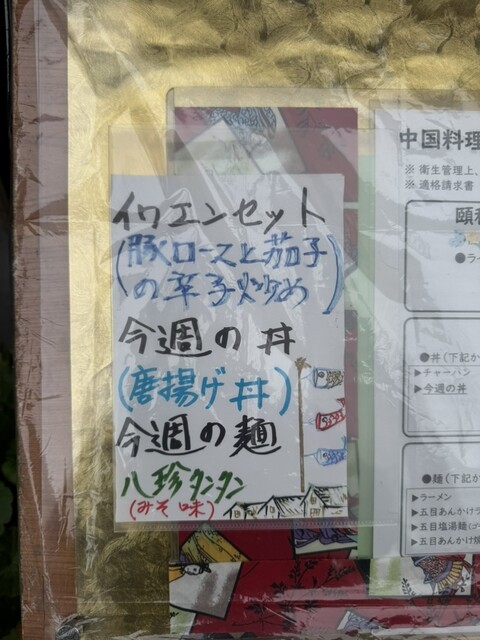 イワエンセット
(豚ロースと茄子
の辛子炒め)
今週の丼
(唐揚げ丼)
今週の麺
八珍タンタン
(みそ味)
中国料理
※ 衛生管理上、
※ 適格請求書
頤和
●ラー
●丼(下記か
▶チャーハン
▶今週の丼
●麺(下記か
▶ラーメン
▶五目あんかけラ
▶五目塩湯麺
▶五目あんかけ焼